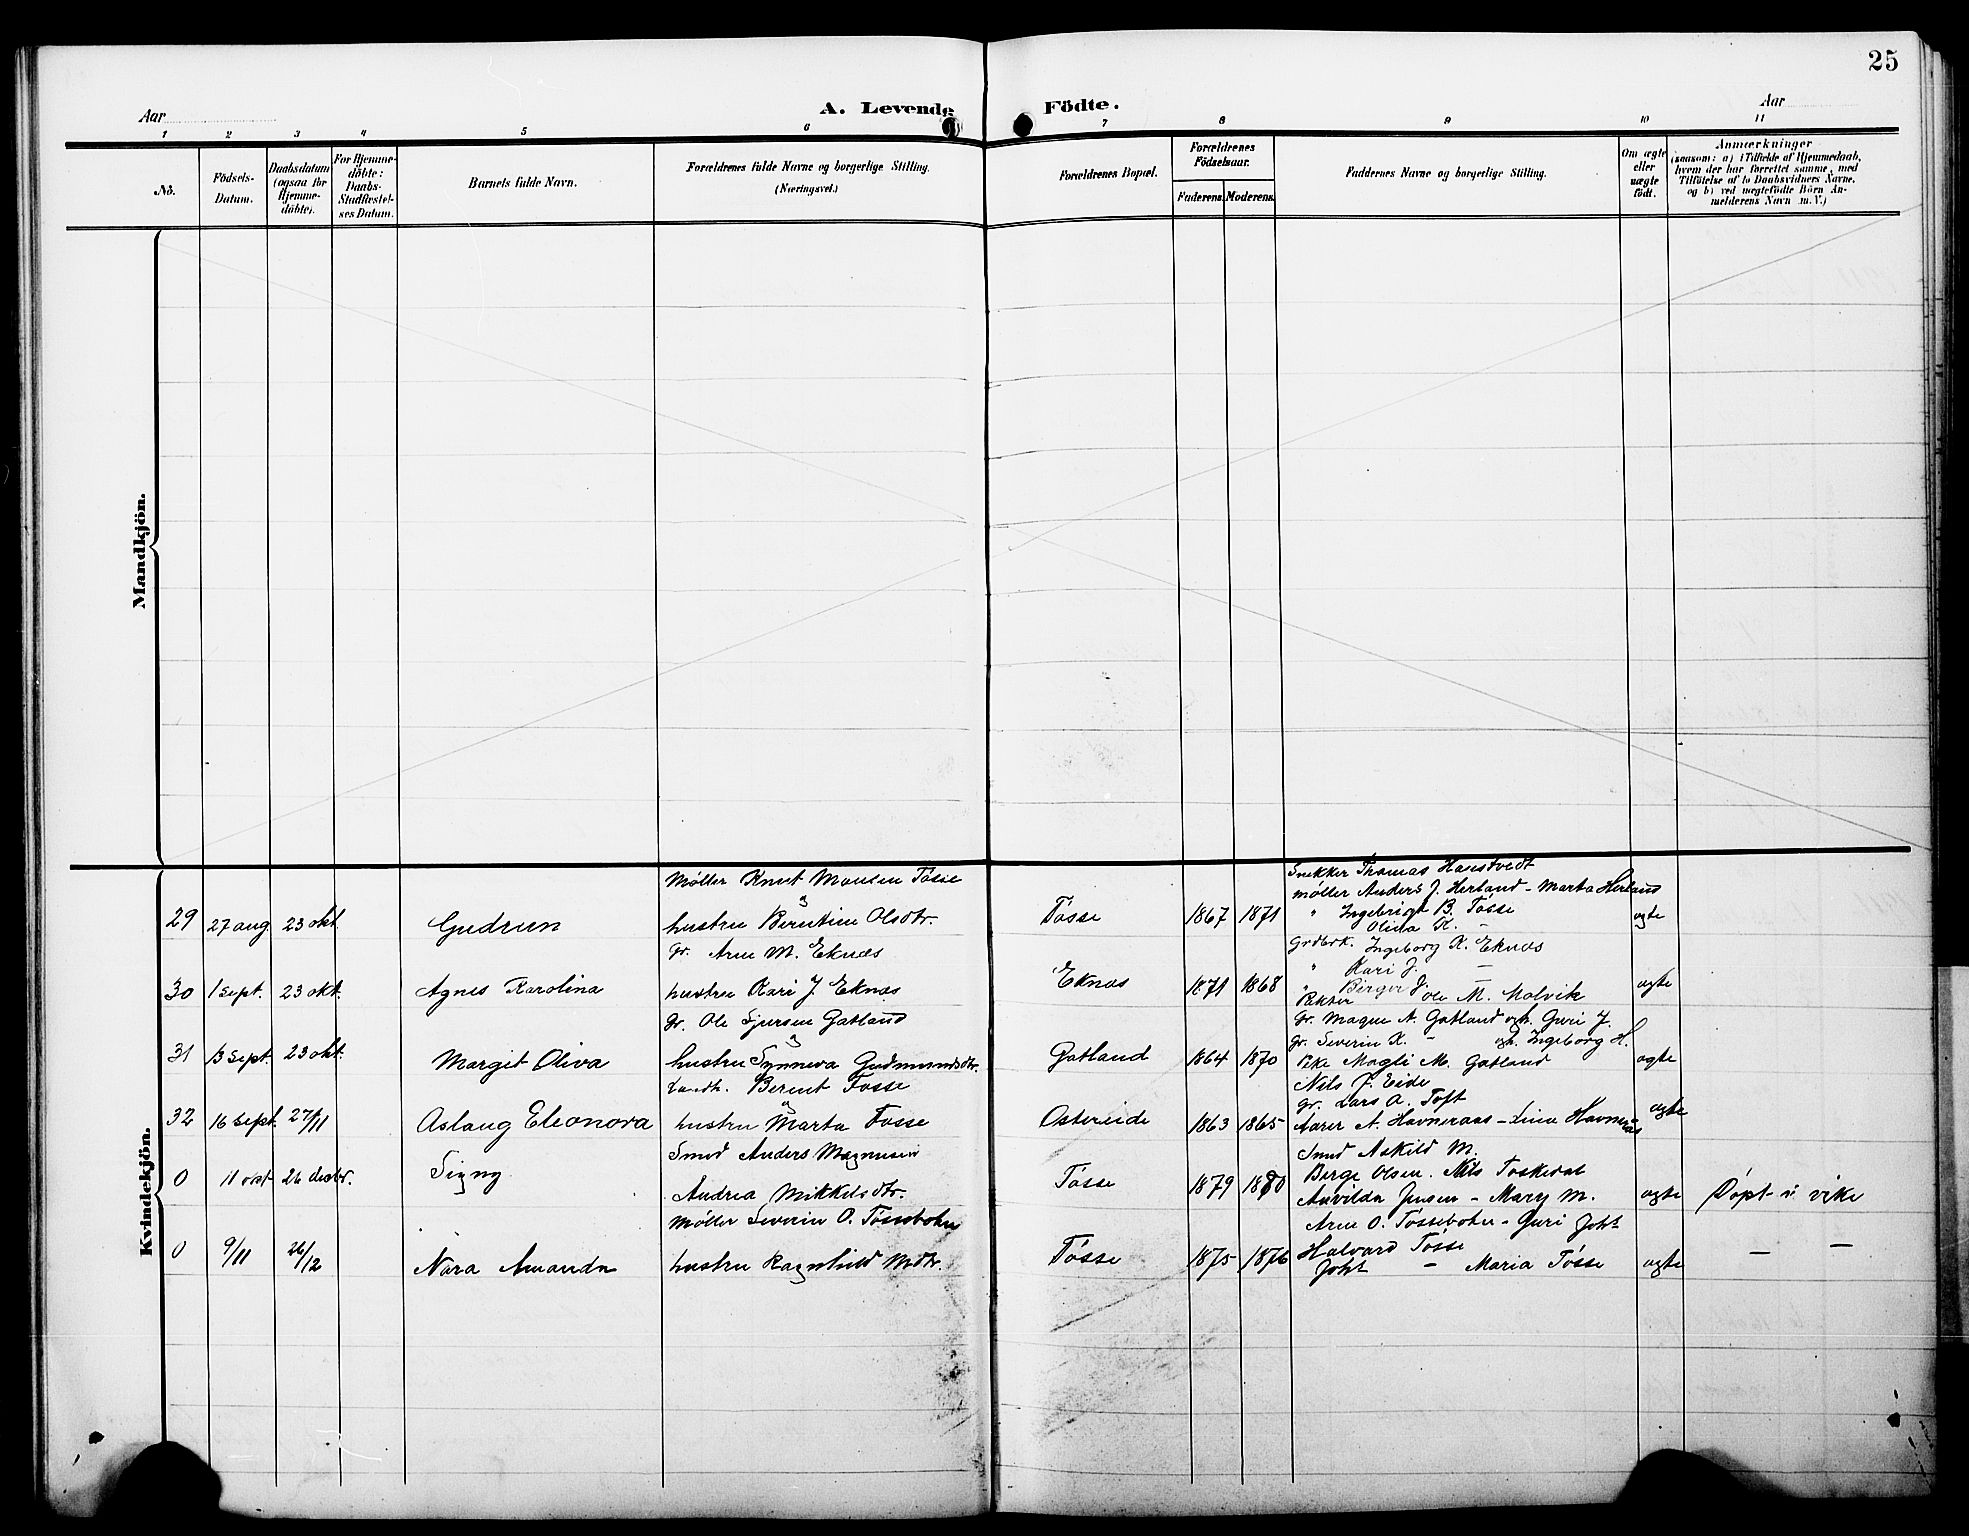 25
A. Levende Födte.
Aar
Aar
1 2 3 4 5 6 7 8 9 10 11
No.
Födsels-Datum.
Daabsdatum (ogsaa for Hjemmedöbte).
For Hjemmedöbte: Daabs-Stadfæstelses Datum.
Barnets fulde Navn.
Forældrenes fulde Navne og borgerlige Stilling.
(Næringsvei.)
Forældrenes Bopæl.
Forældrenes Födselsaar.
Faderens. Moderens.
Faddernes Navne og borgerlige Stilling.
Om ægte eller uægte födt.
Anmærkninger
(saasom: a) i Tilfælde af Hjemmedaab,
hvem der har forrettet samme, med
Tilföielse af to Daabsvidners Navne,
og b) ved uægtefödte Börn An-
melderens Navn m. V.)
Mandkjön.
Kvindekjön.
Møller Knut Monsen Tösse
29 27 aug 23 okt. Gudrun
& hustru Berntine Olsdtr.
Tösse 1867 1871
Snekker Thomas Hanstvedt
Møller Anders J. Herland - Marta Herland
" Ingebrigt B. Tösse
Olina K. -
ægte
Gr. Arne M. Eknæs
30 1 sept. 23 okt. Agnes Karolina
hustru Kari J. Eknæs
Eknæs 1871 1868
Grdbrk. Ingeborg K. Eknæs
" Kari J. -
" Birger J.
Ole M. Molvik
ægte
Gr. Ole Sjursen Gatland
31 13 sept. 23 okt. Margit Oliva
& hustru Synneva Gudmundsdtr.
Gatland 1864 1870
Gr. Magne A. Gatland og h. Guri J.
Gr. Severin K. - og h. Ingeborg H.
Pike Magli M. Gatland
ægte
Landh. Berent Fosse
32 16 sept. 27/11 Aslaug Eleonora
& hustru Marta Fosse
Ostereide 1863 1865
Nils J. Eide
Gr. Lars A. Toft
A. Havneraas - Lina Havneraas
ægte
Smed Anders Magnusen
0 11 okt 26 decbr. Signy
Andrea Mikkelsdtr.
Tösse 1879 1880
Smed Askild M.
Berge Olsen. Nils Toskedal
Anvilda Jensen - Mary M.
ægte Döpt i vike
Møller Severin O. Tössebotn
0 9/11 26/12 Nora Amanda
hustru Ragnhild Mdtr.
Tösse 1875 1876
Arne O. Tössebotn - Guri Joht
Halvard Tösse
Joht - Maria Tösse
ægte — —